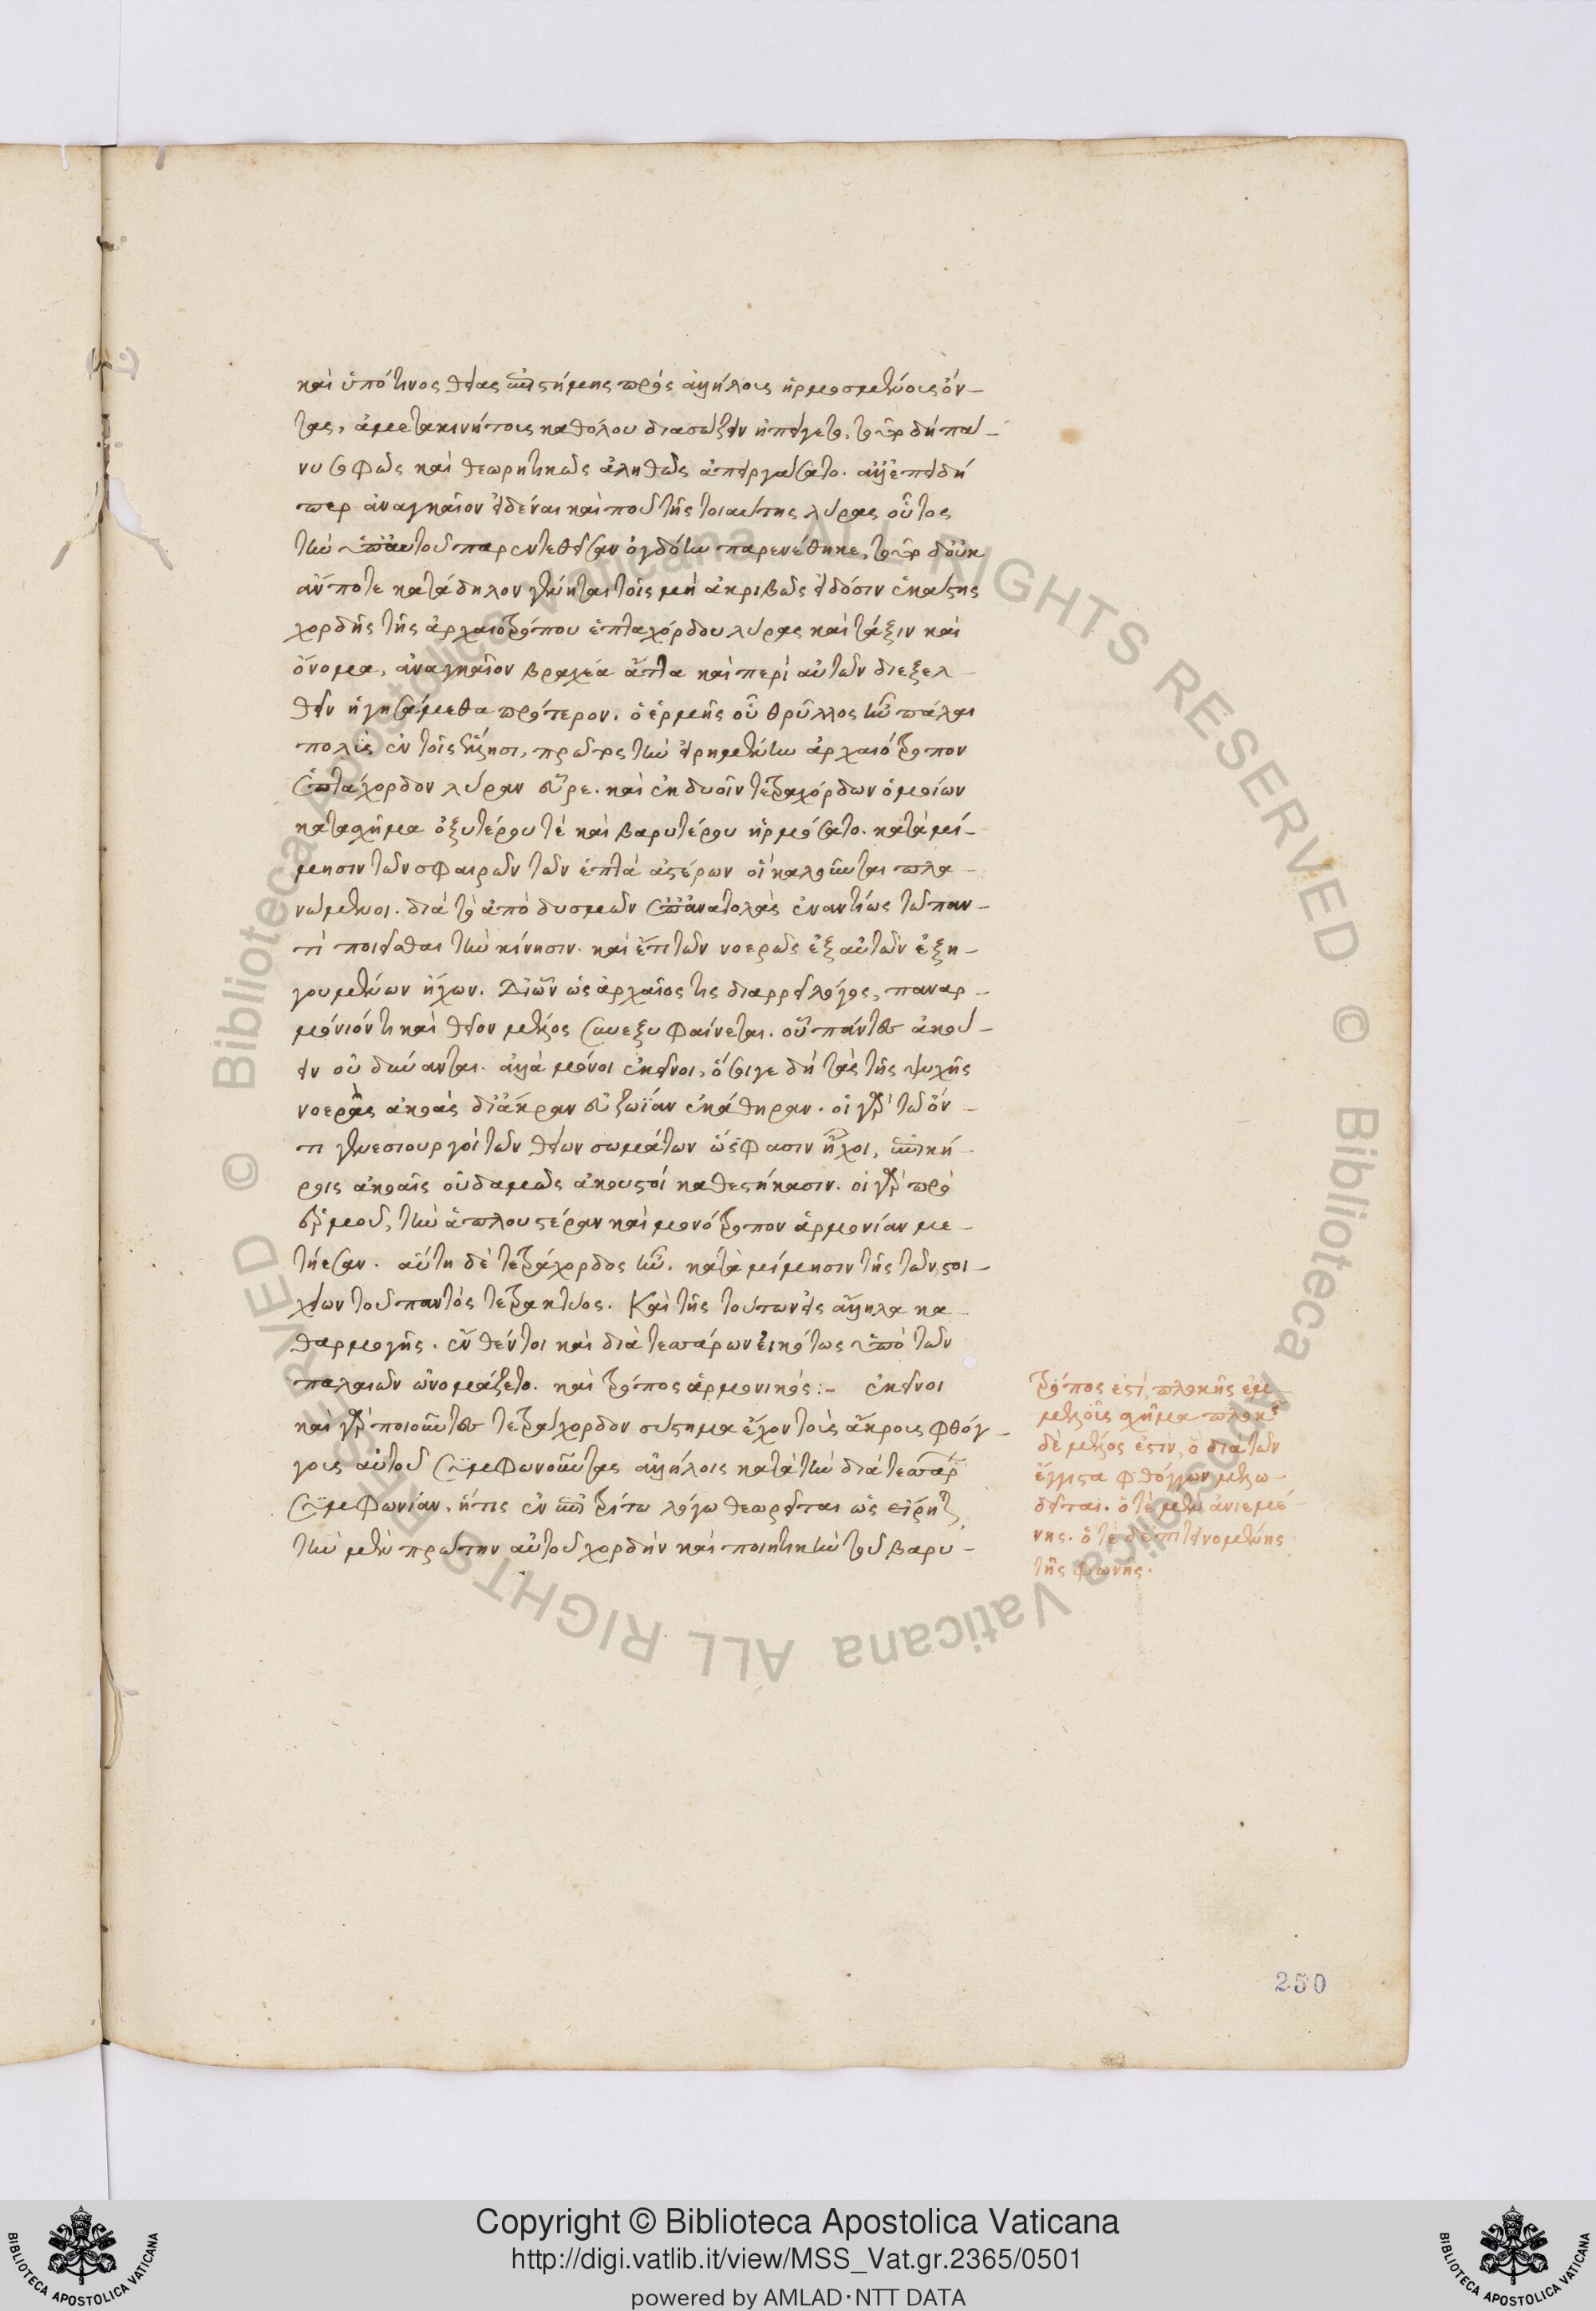 καὶ ὑπό τινος θείας ἐπιστήμης πρὸς ἀλλήλους ἡρμοσμένους ὄν-
τας, ἀμετακινήτους καθόλου διασώζειν ἠπείγετο, τοῦθ δὴ πά-
νυ σοφῶς καὶ θεωρητικῶς ἀληθῶς ἀπειργάσατο. ἀλλ' ἐπειδή
περ ἀναγκαῖον εἰδέναι καὶ ποῦ τῆς τοιαύτης λύρας οὗτος
τὴν ὑπ' αὐτοῦ παρεντεθεῖσαν ὀγδόην παρενέθηκε, τοῦτο δ' οὐκ
ἄν ποτε κατάδηλον γένηται τοῖς μὴ ἀκριβῶς εἰδόσιν ἑκάστης
χορδῆς τῆς ἀρχαιοτρόπου ἑπταχόρδου λύρας καὶ τάξιν καὶ
ὄνομα, ἀναγκαῖον βραχέα ἄττα καὶ περὶ αὐτῶν διεξελ-
θεῖν ἡγησάμεθα πρότερον. ὁ ἑρμῆς οὗ θρύλλος ἦν πάλαι
πολὺς ἐν τοῖς ἕλλησι, πρῶτος τὴν εἰρημένην ἀρχαιότροπον
ἑπτάχορδον λύραν εὗρε. καὶ ἐκ δυοῖν τετραχόρδων ὁμοίων
κατὰ σχῆμα ὀξυτέρου τὲ καὶ βαρυτέρου ἡρμόσατο. κατὰ μί-
μησιν τῶν σφαιρῶν τῶν ἑπτὰ ἀστέρων οἳ καλοῦνται πλα-
νώμενοι. διὰ τὸ ἀπὸ δυσμῶν ἐπ' ἀνατολὰς ἐναντίως τῷ παν-
τὶ ποιεῖσθαι τὴν κίνησιν. καὶ ἔτι τῶν νοερῶς ἐξ αὐτῶν ἐξη-
χουμένων ἤχων. Δι' ὧν ὡς ἀρχαῖός τις διαρρεῖ λόγος, παναρ-
μόνιόν τι καὶ θεῖον μέλος συνεξυφαίνεται. οὗ πάντες ἀκού-
ειν οὐ δύνανται. ἀλλὰ μόνοι ἐκεῖνοι, ὅσοι γε δὴ τὰς τῆς ψυχῆς
νοερὰς ἀκοὰς δι' ἄκραν εὐζωΐαν ἐκάθηραν. οἱ γὰρ τῷ ὄν-
τι γενεσιουργοὶ τῶν θείων σωμάτων ὥς φασιν ἦχοι, ἐπική-
ροις ἀκοαῖς οὐδαμῶς ἀκουστοὶ καθεστήκασιν. οἱ γὰρ πρὸ
ἑρμοῦ, τὴν ἁπλουστέραν καὶ μονότροπον ἁρμονίαν με-
τήεσαν. αὕτη δὲ τετράχορδος ἦν. κατὰ μίμησιν τῆς τῶν στοι-
χείων τοῦ παντὸς τετρακτύος. Καὶ τῆς τούτων εἰς ἄλληλα κα-
θαρμογῆς. ἔνθέν τοι καὶ διὰ τεσσάρων εἰκότως ὑπὸ τῶν
παλαιῶν ὠνομάζετο. καὶ τρόπος ἁρμονικός:- ἐκεῖνοι
καὶ γὰρ ποιοῦντες τετράχορδον σύστημα ἔχον τοὺς ἄκρους φθόγ-
γους αὐτοῦ συμφωνοῦντας ἀλλήλοις κατὰ τὴν διὰ τεσσάρων
συμφωνίαν, ἥτις ἐν ἐπιτρίτῳ λόγῳ θεωρεῖται ὡς εἴρηται,
τὴν μὲν πρώτην αὐτοῦ χορδὴν καὶ ποιητικὴν τοῦ βαρυ-
τρόπος ἐστὶ, πλοκῆς ἐμ-
μελοῦς σχῆμα πλοκῆς
δὲ μέλος ἐστὶν, ὃ διὰ τῶν
ἔγγιστα φθόγγων μελῳ-
δεῖται. ὁτὲ μὲν ἀνιεμέ-
νης. ὁτὲ δ' ἐπιτεινομένης
τῆς φωνῆς.
250
© Biblioteca Apostolica Vaticana ALL RIGHTS RESERVED © Biblioteca Apostolica Vaticana ALL RIGHTS RESERVED
Copyright © Biblioteca Apostolica Vaticana
http://digi.vatlib.it/view/MSS_Vat.gr.2365/0501
powered by AMLAD·NTT DATA
BIBLIOTECA APOSTOLICA VATICANA
BIBLIOTECA APOSTOLICA VATICANA